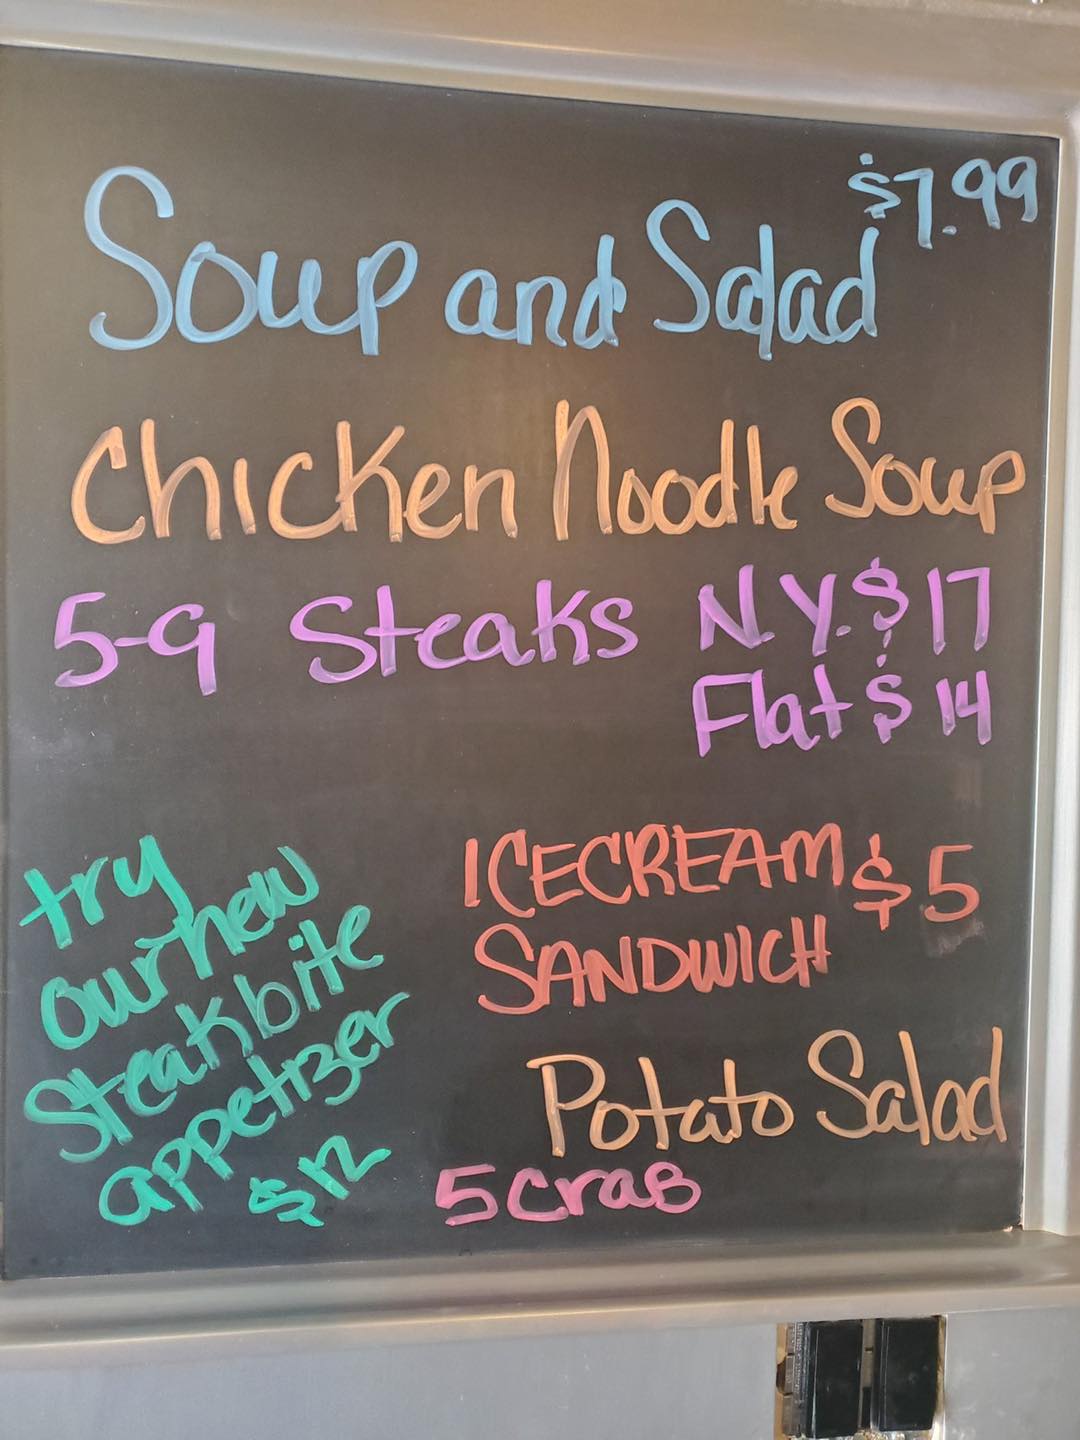 $7.99
Soup and Salad
Chicken Noodle Soup
5-9 Steaks N.Y. $17
Flat $14
try
our new
Steak bite
appetizer
$12
ICECREAM $5
SANDWICH
Potato Salad
5 crab